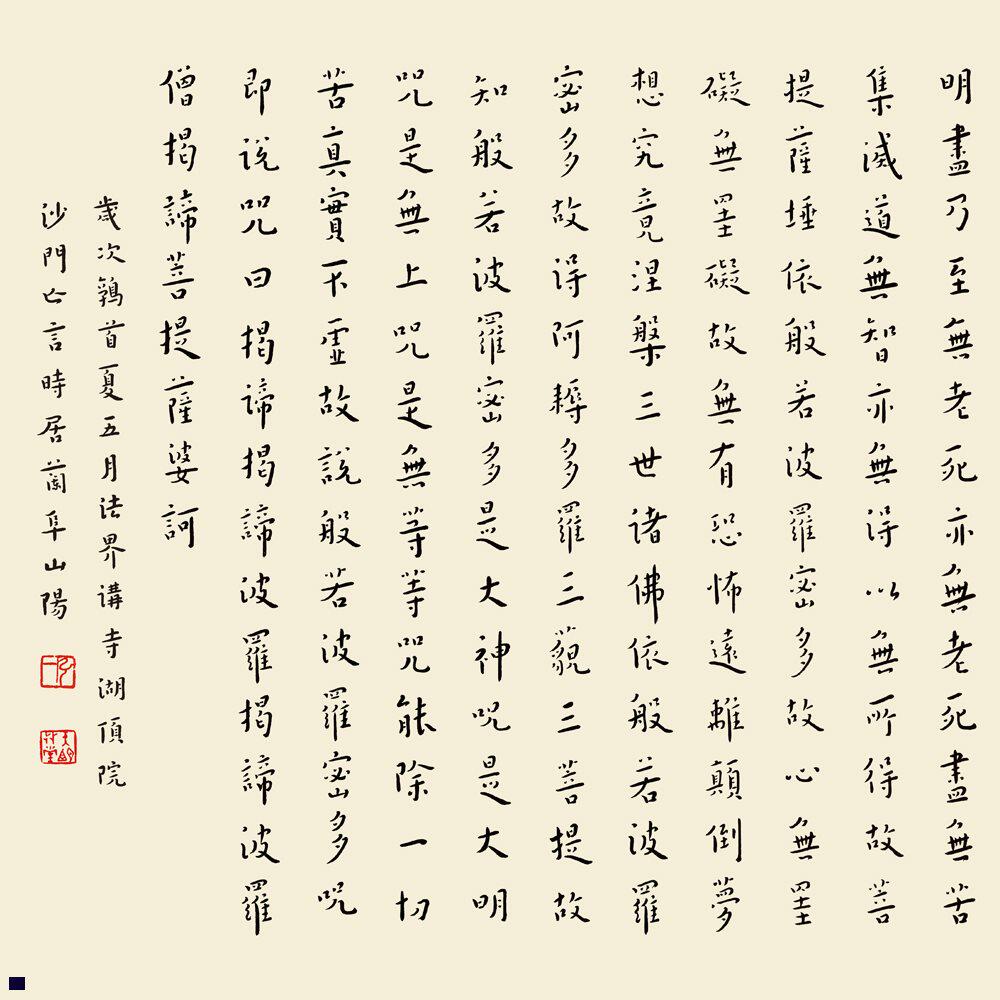 明盡乃至無老死亦無老死盡無苦
集滅道無智亦無得以無所得故菩
提薩埵依般若波羅密多故心無罣
礙無罣礙故無有恐怖遠離顛倒夢
想究竟涅槃三世諸佛依般若波羅
密多故得阿耨多羅三藐三菩提故
知般若波羅密多是大神咒是大明
咒是無上咒是無等等咒能除一切
苦真實不虛故說般若波羅密多咒
即說咒曰揭諦揭諦波羅揭諦波羅
僧揭諦菩提薩婆訶
歲次鶉首夏五月法界講寺湖頂院
沙門亡言時居蘭阜山陽